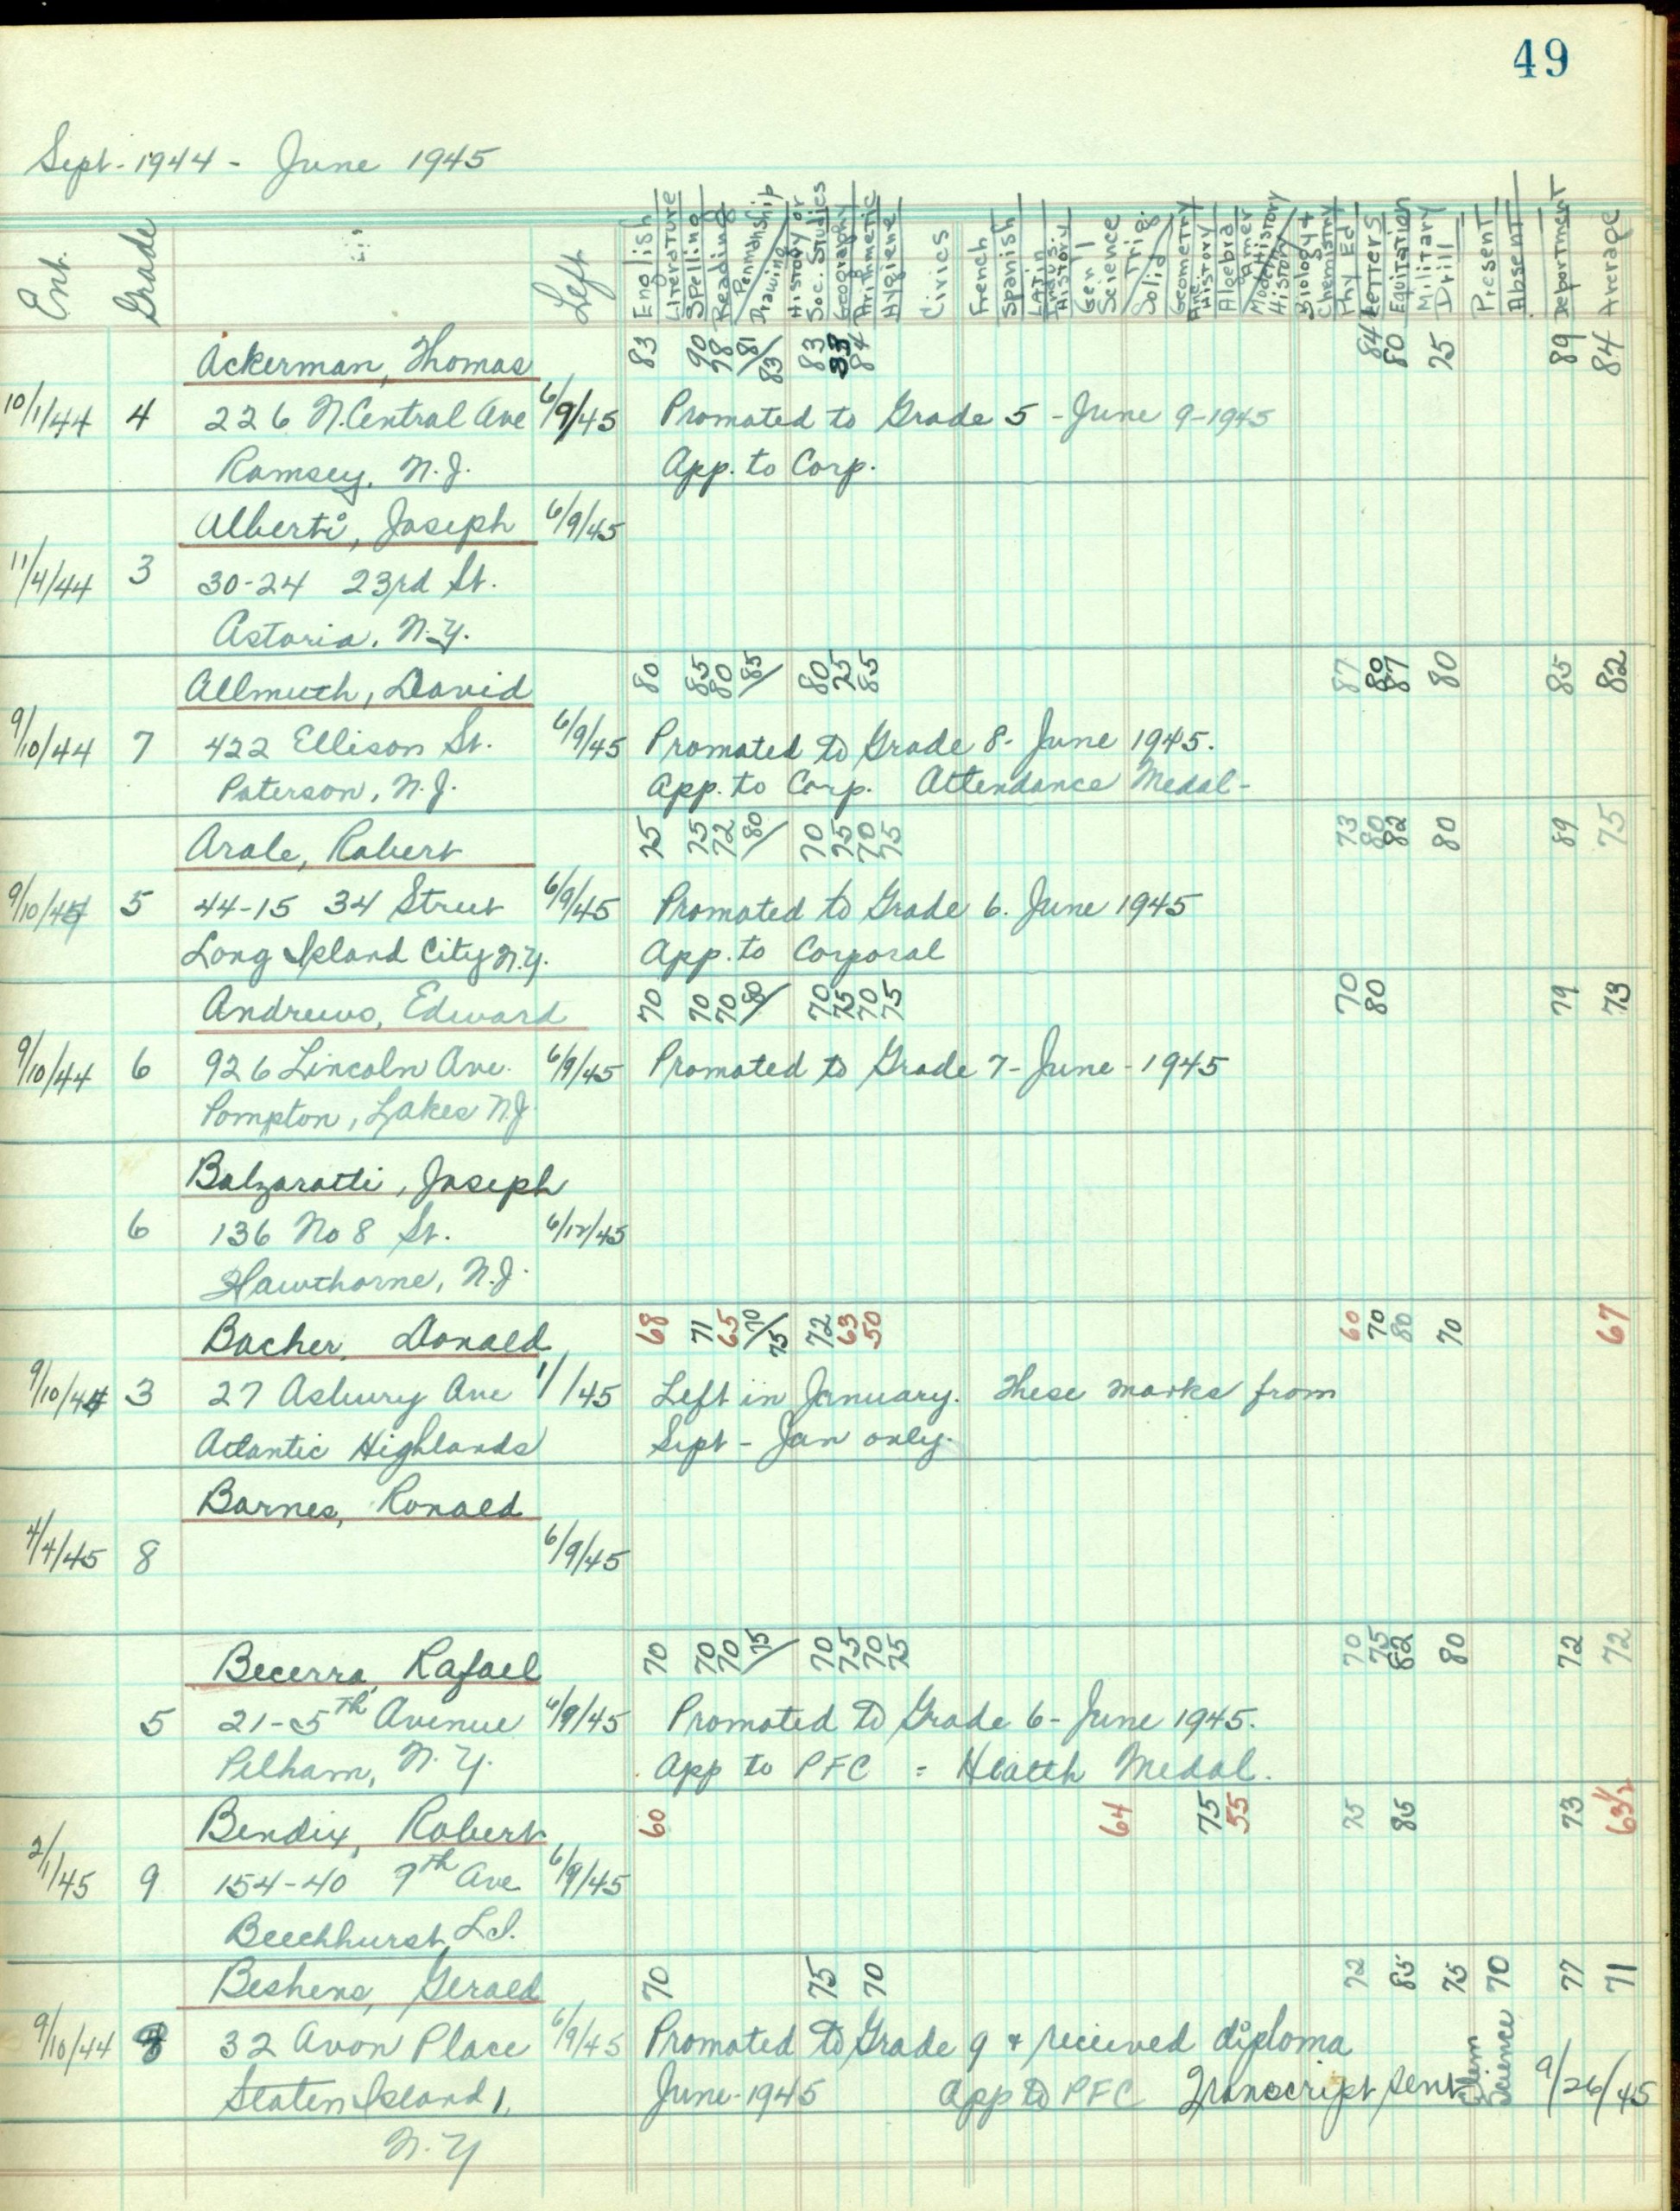 49
Sept. 1944 - June 1945
Ent. Grade Left English Literature Spelling Reading Penmanship Drawing History or Soc. Studies Geography Arithmetic Hygiene Civics French Spanish Latin History Gen'l Science Trig. Solid Geometry Anc. History Algebra Amer History Modern History Biology + Chemistry Phy Ed Letters Equitation Military Drill Present Absent Deportment Average
Ackerman, Thomas 83 90 78 81/83 83 83 84 84 80 75 89 84
10/1/44 4 226 N. Central Ave 6/9/45 Promoted to Grade 5 - June 9-1945
Ramsey, N.J. App. to Corp.
Alberti, Joseph 6/9/45
11/4/44 3 30-24 23rd St.
Astoria, N.Y.
Allmuth, David 80 85 80 85/ 80 75 85 87 80 87 80 85 82
9/10/44 7 422 Ellison St. 6/9/45 Promoted to Grade 8 - June 1945.
Paterson, N.J. App. to Corp. Attendance Medal -
Arale, Robert 75 75 72 80/ 70 75 70 75 73 80 82 80 89 75
9/10/44 5 44-15 34 Street 6/9/45 Promoted to Grade 6. June 1945
Long Island City N.Y. App. to Corporal
Andrews, Edward 70 70 70 80/ 70 75 70 75 70 80 79 73
9/10/44 6 926 Lincoln Ave. 6/9/45 Promoted to Grade 7 - June - 1945
Pompton, Lakes N.J.
Balzaratti, Joseph
6 136 No 8 St. 6/12/45
Hawthorne, N.J.
Bacher, Donald 68 71 65 70/75 72 63 50 60 70 80 70 67
9/10/44 3 27 Asbury Ave 1/ /45 Left in January. These marks from
Atlantic Highlands Sept - Jan only.
Barnes, Ronald
4/4/45 8 6/9/45
Becerra, Rafael 70 70 70 75/ 70 75 70 75 70 75 82 80 72 72
5 21-5th Avenue 6/9/45 Promoted to Grade 6 - June 1945.
Pelham, N.Y. App to PFC = Health Medal.
Bendix, Robert 60 64 75 55 75 85 73 63½
2/1/45 9 154-40 9th Ave 6/9/45
Beechhurst, L.I.
Beshens, Gerald 70 75 70 72 85 75 70 77 71
9/10/44 8 32 Avon Place 6/9/45 Promoted to Grade 9 & received diploma
Staten Island 1, June-1945 App to PFC Transcript sent Elem Science 9/26/45
N.Y